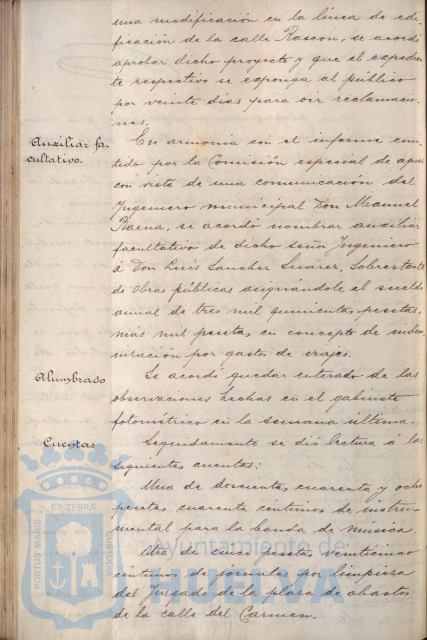 una modificación en la linea de edi-
ficación de la calle Rascon, se acordó
aprobar dicho proyecto y que el expedien-
te respectivo se exponga al público
por veinte dias para oir reclamacio-
nes.
Auxiliar fa-
cultativo.
En armonía con el informe emi-
tido por la Comisión especial de aguas
con vista de una comunicación del
Ingeniero municipal Don Manuel
Baena, se acordó nombrar auxiliar
facultativo de dicho señor Ingeniero
á Don Luis Sanchez Suarez, Sobrestante
de Obras públicas asignandole el sueldo
anual de tres mil quinientas pesetas,
mas mil pesetas en concepto de indem-
nización por gastos de viajes.
Alumbrado
Se acordó quedar enterado de las
observaciones hechas en el gabinete
fotométrico en la semana última.
Cuentas
Seguidamente se dió lectura á las
siguientes cuentas:
Una de doscientas cuarenta y ocho
pesetas cuarenta centimos de instru-
mental para la banda de música.
Otra de cinco pesetas veinticinco
centimos de jornales por limpieza
del Juzgado de la plaza de abastos
de la calle del Carmen.
PORTUS MARIS ET TERRÆ CUSTODIA
Ayuntamiento de
HUELVA